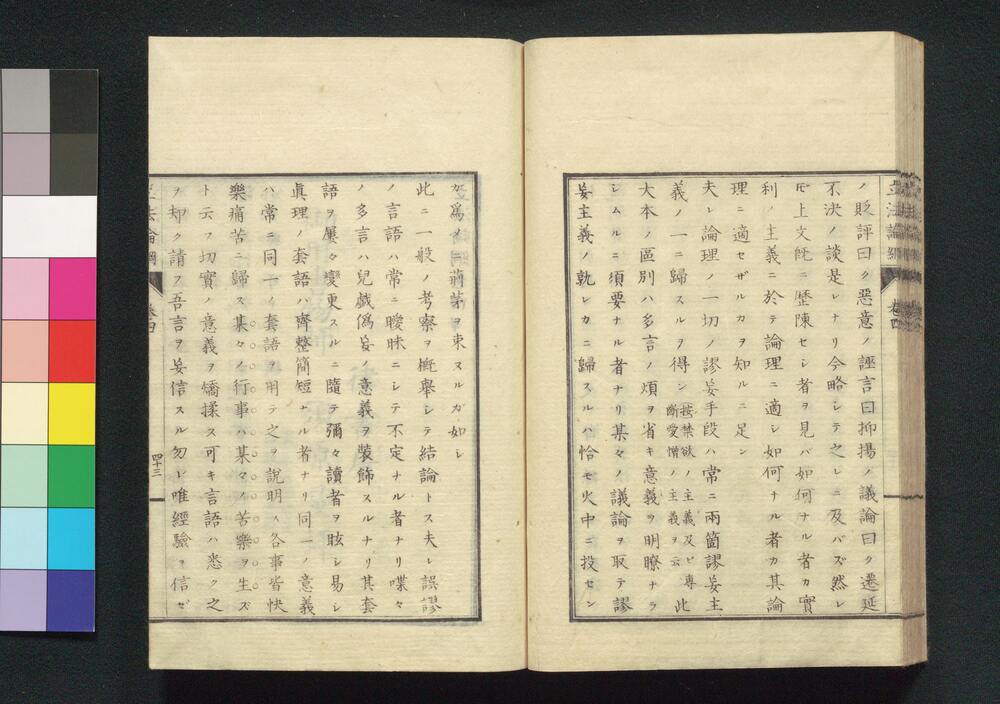 立法論綱 卷四
ノ貶評曰ク惡意ノ誣言曰抑揚ノ議論曰ク遷延
不決ノ談是レナリ今略シテ之レニ及バズ然レ
𪜈上文既ニ歷陳セシ者ヲ見バ如何ナル者カ實
利ノ主義ニ於テ論理ニ適シ如何ナル者カ其論
理ニ適セザルカヲ知ルニ足ン
夫レ論理ノ一切ノ謬妄手段ハ常ニ兩箇謬妄主
義ノ一ニ歸スルヲ得ン按禁欲ノ主義及ビ專斷愛憎ノ主義ヲ云此
大本ノ區別ハ多言ノ煩ヲ省キ意義ヲ明瞭ナラ
シムルニ須要ナル者ナリ某々ノ議論ヲ取テ謬
妄主義ノ孰レカニ歸スルハ恰モ火中ニ投セン
ガ爲メニ荊茅ヲ束ヌルガ如シ
此ニ一般ノ考察ヲ概舉シテ結論トス夫レ誤謬
ノ言語ハ常ニ曖昧ニシテ不定ナル者ナリ喋々
ノ多言ハ兒戲僞妄ノ意義ヲ裝飾スルナリ其套
語ヲ屢々變更スルニ隨テ彌々讀者ヲ眩シ易シ
眞理ノ套語ハ齊整簡短ナル者ナリ同一ノ意義
ハ常ニ同一ノ套語ヲ用テ之ヲ說明ス各事皆快
樂痛苦ニ歸ス某々ノ行事ハ某々ノ苦樂ヲ生ズ
ト云フ切實ノ意義ヲ矯揉ス可キ言語ハ悉ク之
ヲ却ク請フ吾言ヲ妄信スル勿レ唯經驗ヲ信ゼ
立法論綱 卷四 四十三